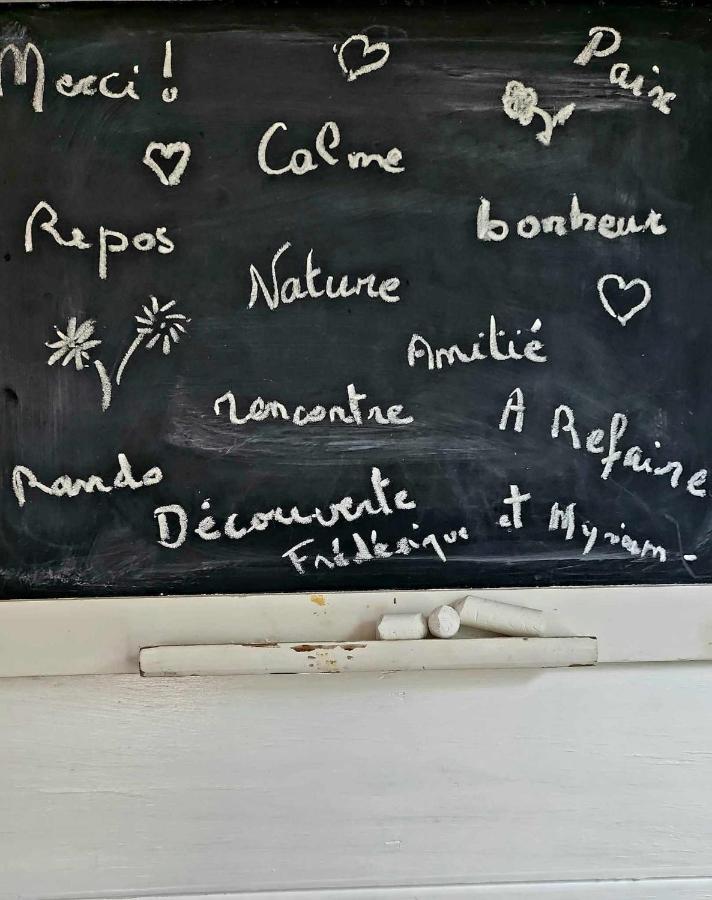 Merci !
Paix
Calme
Repos
bonheur
Nature
Amitié
rencontre
A Refaire
Rando
Découverte
Frédérique et Myriam.